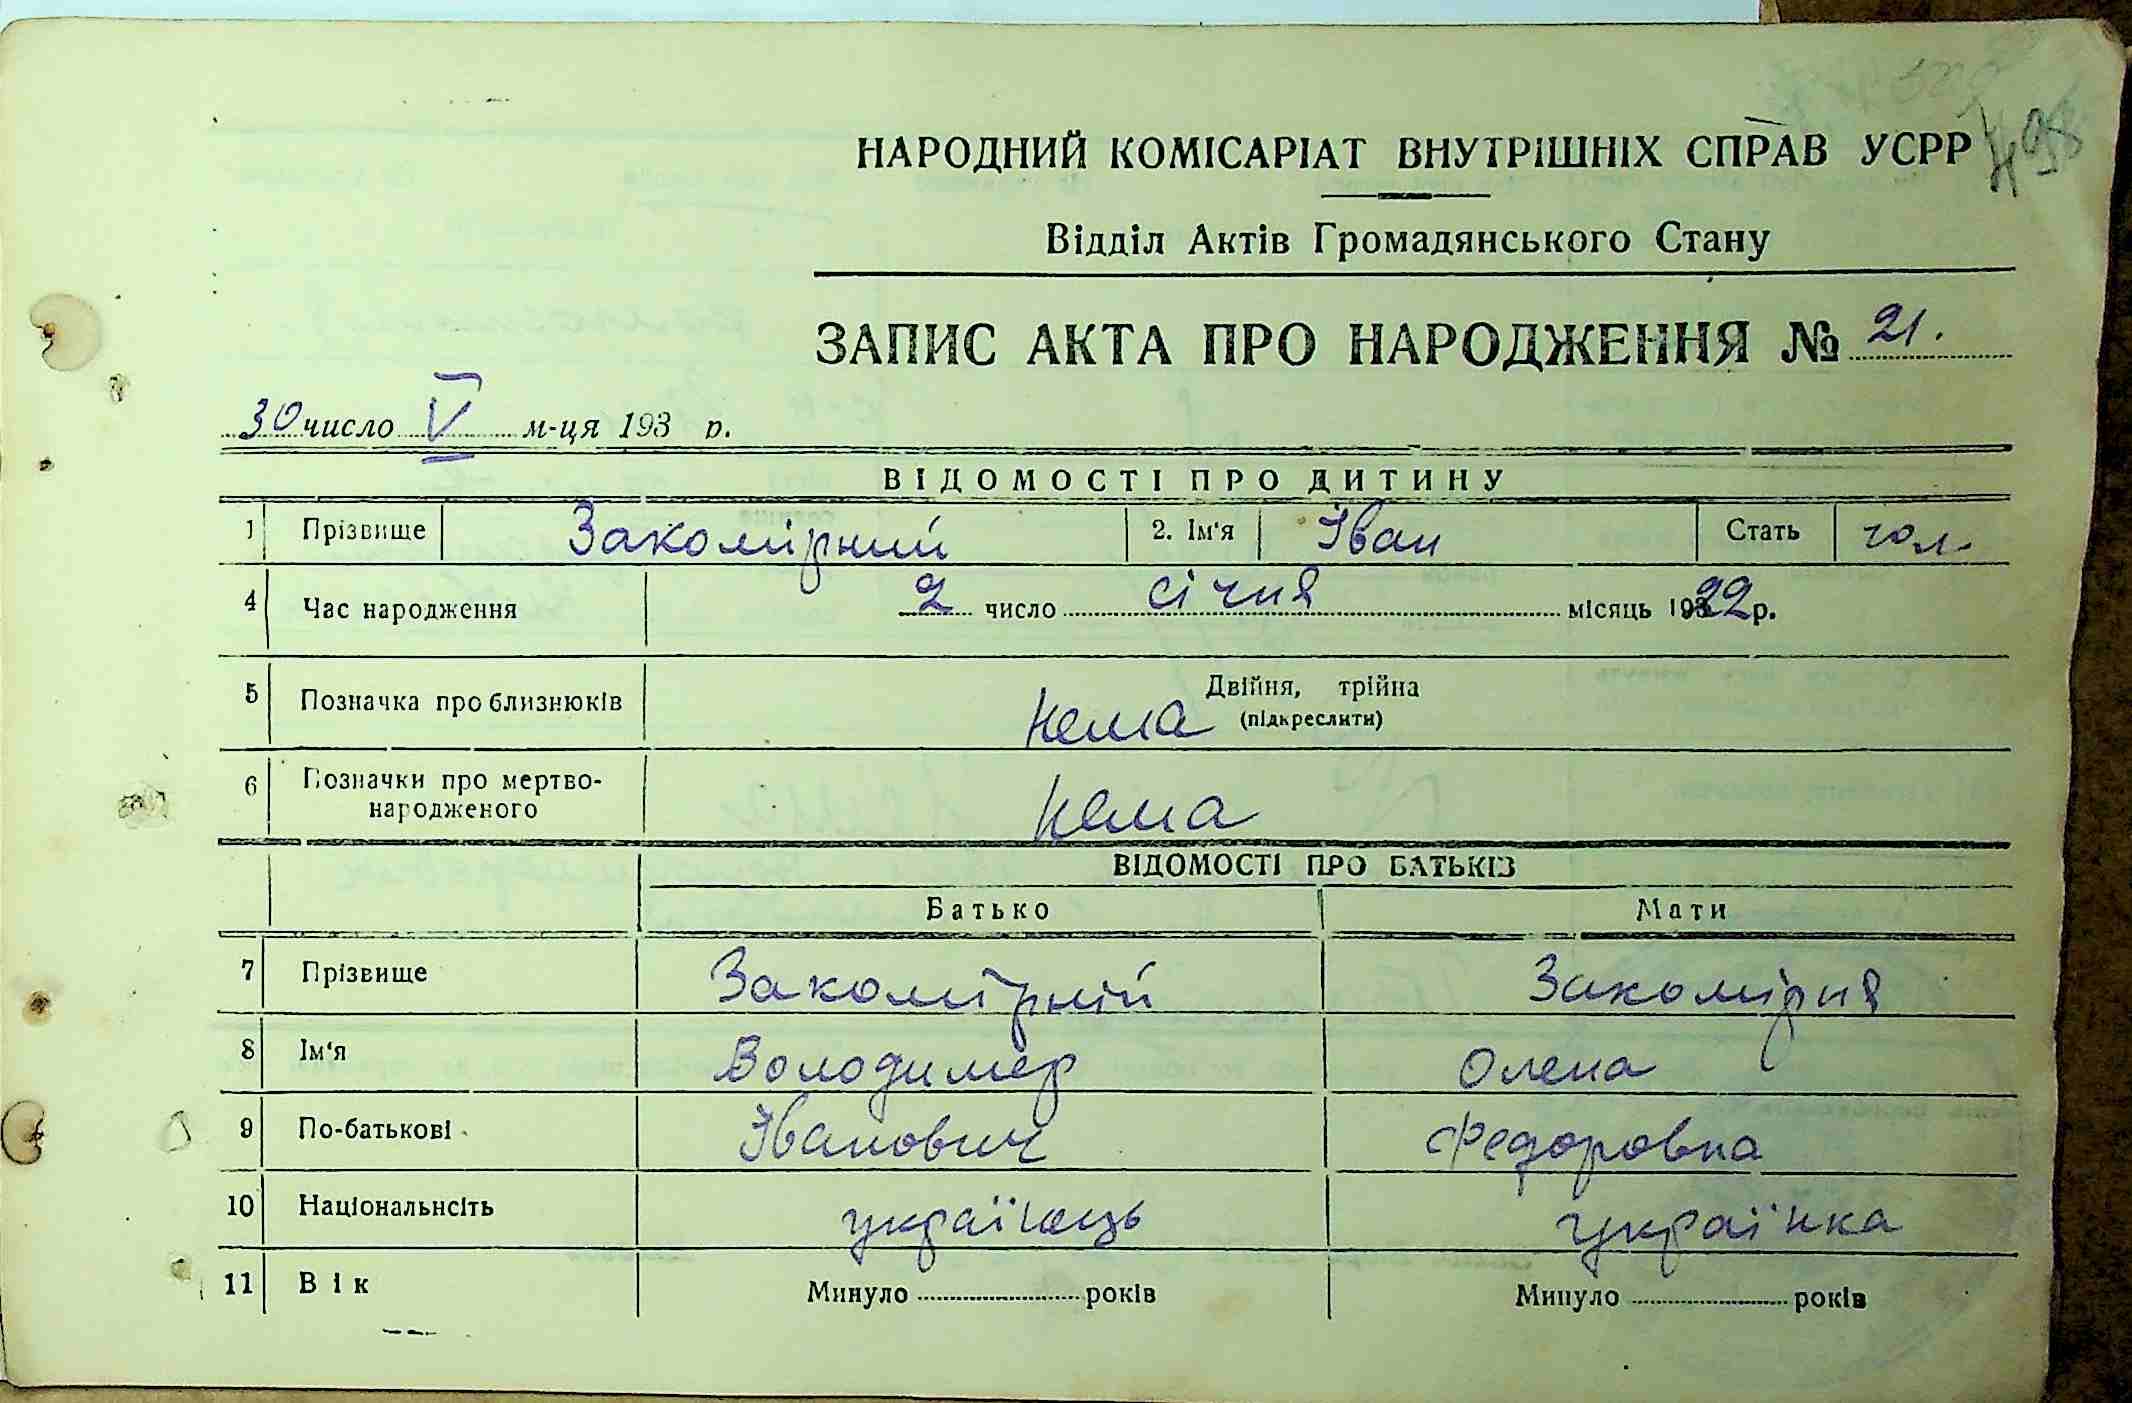 498
НАРОДНИЙ КОМІСАРІАТ ВНУТРІШНІХ СПРАВ УСРР
Відділ Актів Громадянського Стану
ЗАПИС АКТА ПРО НАРОДЖЕННЯ № 21.
30 число V м-ця 193 р.
ВІДОМОСТІ ПРО ДИТИНУ
1 Прізвище Закомірний 2. Ім'я Іван Стать чол.
4 Час народження 2 число січня місяць 1922 р.
5 Позначка про близнюків Двійня, трійна
нема (підкреслити)
6 Позначки про мертво-
народженого нема
ВІДОМОСТІ ПРО БАТЬКІВ
Батько Мати
7 Прізвище Закомірній Закомірня
8 Ім'я Володимер Олена
9 По-батькові Іванович Федоровна
10 Національнсіть українець українка
11 Вік Минуло років Минуло років